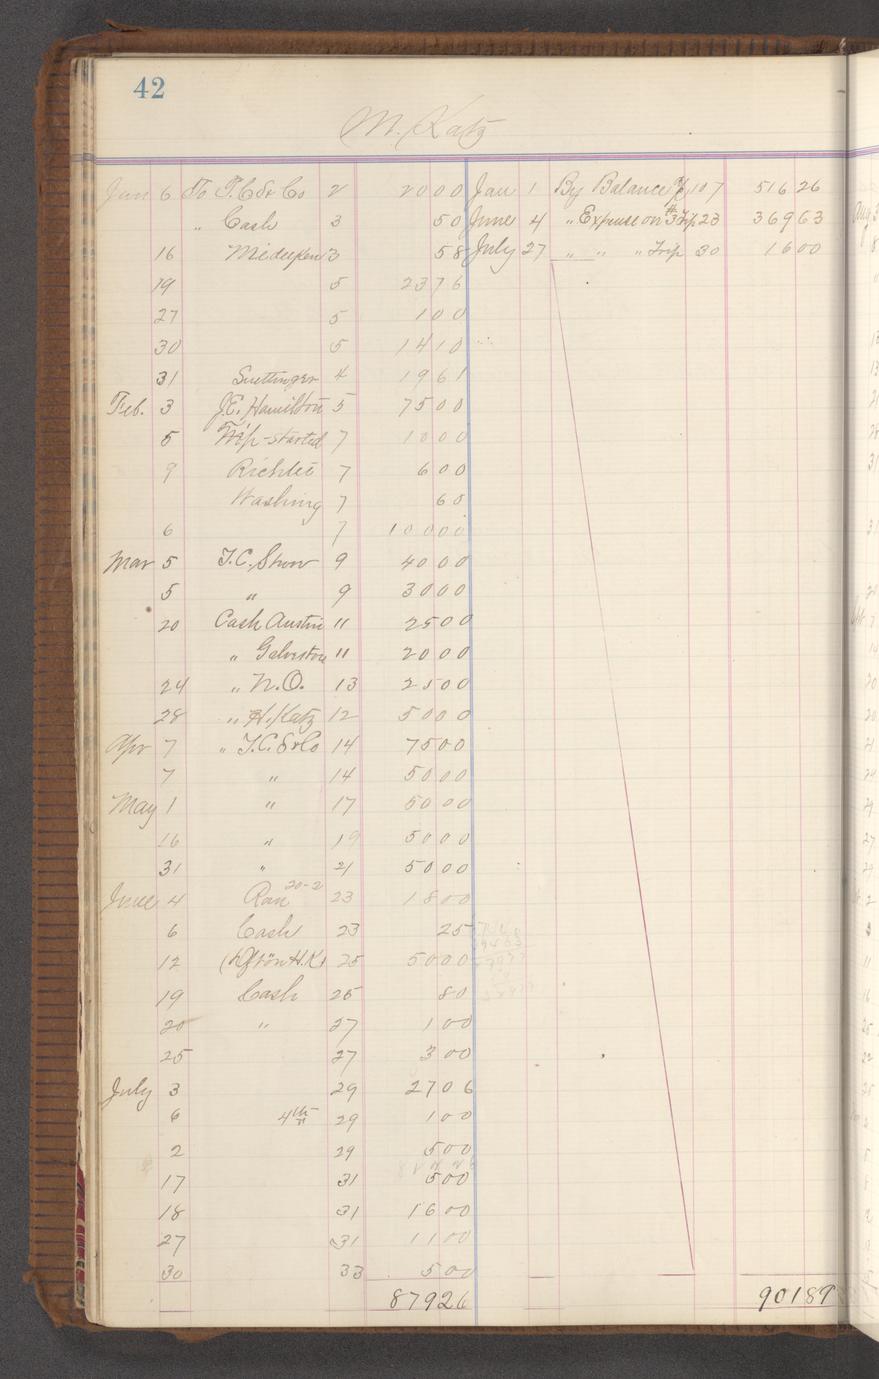 42
M. Katz
Jan 6 To T.C. & Co 2 20 00 Jan 1 By Balance 107 516 26
" Cash 3 50 June 4 " Expense on #3 Trip 23 369 63
16 3 58 July 27 " " " Trip 30 16 00
19 5 23 76
27 5 1 00
30 5 14 10
31 4 19 61
Feb. 3 J.E. Hamilton 5 75 00
5 Trip-started 7 10 00
9 7 6 00
Washing 7 60
6 7 100 00
Mar 5 T.C. 9 40 00
5 " 9 30 00
20 Cash Austin 11 25 00
" Galveston 11 20 00
24 " N.O. 13 25 00
28 " H. Katz 12 50 00
Apr 7 " T.C. & Co 14 75 00
7 " 14 50 00
May 1 " 17 50 00
16 " 19 50 00
31 " 21 50 00
June 4 20-2 23 18 00
6 Cash 23 25
12 H.K) 25 50 00
19 Cash 25 80
20 " 27 1 00
25 27 3 00
July 3 29 27 06
6 4th 29 1 00
2 29 5 00
17 31 5 00
18 31 16 00
27 31 11 00
30 33 5 00
879 26 901 89